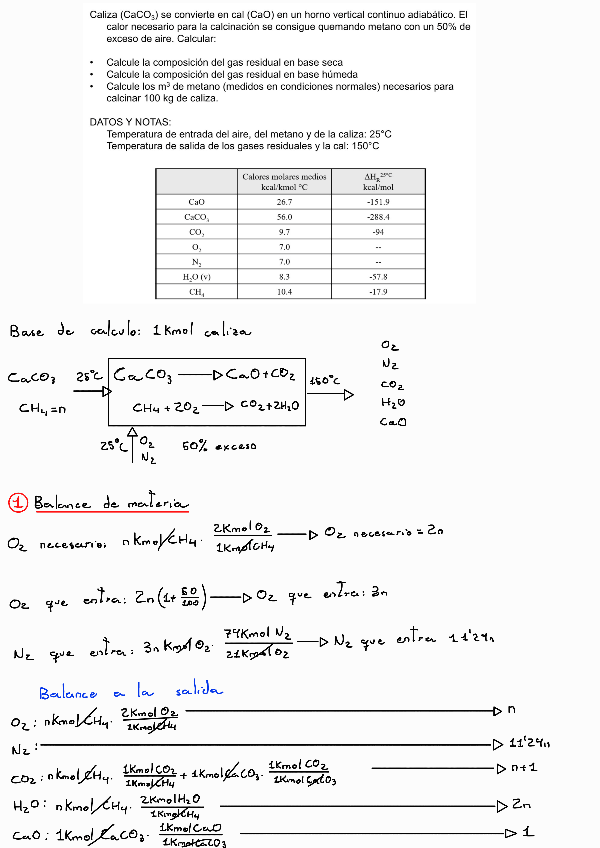 Caliza (CaCO₃) se convierte en cal (CaO) en un horno vertical continuo adiabático. El
calor necesario para la calcinación se consigue quemando metano con un 50% de
exceso de aire. Calcular:
• Calcule la composición del gas residual en base seca
• Calcule la composición del gas residual en base húmeda
• Calcule los m³ de metano (medidos en condiciones normales) necesarios para
calcinar 100 kg de caliza.
DATOS Y NOTAS:
Temperatura de entrada del aire, del metano y de la caliza: 25°C
Temperatura de salida de los gases residuales y la cal: 150°C
Calores molares medios kcal/kmol °C ΔH_R^25°C kcal/mol
CaO 26.7 -151.9
CaCO₃ 56.0 -288.4
CO₂ 9.7 -94
O₂ 7.0 --
N₂ 7.0 --
H₂O (v) 8.3 -57.8
CH₄ 10.4 -17.9
Base de calculo: 1 Kmol caliza
CaCO₃ 25°C CaCO₃ → CaO + CO₂ 150°C
CH₄ = n CH₄ + 2O₂ → CO₂ + 2H₂O
O₂
N₂
CO₂
H₂O
CaO
25°C O₂ 50% exceso
N₂
① Balance de materia
O₂ necesario: n Kmol CH₄ · 2 Kmol O₂ / 1 Kmol CH₄ → O₂ necesario = 2n
O₂ que entra: 2n (1 + 50/100) → O₂ que entra: 3n
N₂ que entra: 3n Kmol O₂ · 79 Kmol N₂ / 21 Kmol O₂ → N₂ que entra 11'29n
Balance a la salida
O₂: n Kmol CH₄ · 2 Kmol O₂ / 1 Kmol CH₄ → n
N₂: → 11'29n
CO₂: n Kmol CH₄ · 1 Kmol CO₂ / 1 Kmol CH₄ + 1 Kmol CaCO₃ · 1 Kmol CO₂ / 1 Kmol CaCO₃ → n+1
H₂O: n Kmol CH₄ · 2 Kmol H₂O / 1 Kmol CH₄ → 2n
CaO: 1 Kmol CaCO₃ · 1 Kmol CaO / 1 Kmol CaCO₃ → 1